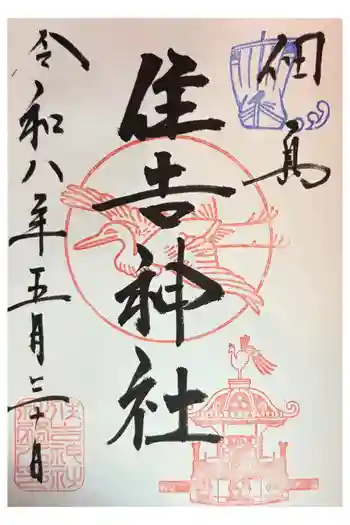 細島
住吉神社
令和八年五月三十日